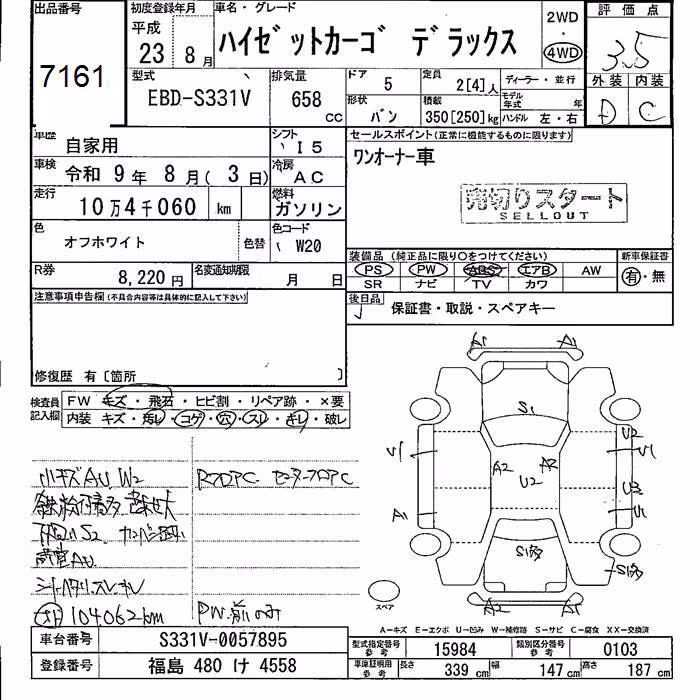 出品番号
7161
初度登録年月
平成
23 8月
車名・グレード
ハイゼットカーゴ デラックス
2WD
4WD
評価点
3.5
外装 内装
D C
型式
EBD-S331V
排気量
658 CC
ドア 5
形状 バン
定員 2[4]人
積載 350[250]kg
ディーラー・並行
モデル年式 年
ハンドル 左・右
車歴 自家用
シフト I5
車検 令和 9年 8月( 3日)
冷房 AC
走行 10万4千060 km
燃料 ガソリン
色 オフホワイト
色替
色コード W20
R券 8,220円
名変通知期限 月 日
セールスポイント(正常に機能するものに限ります)
ワンオーナー車
売切りスタート
SELLOUT
装備品 (純正品に限り○をつけてください)
新車保証書
PS PW ABS エアB AW
SR ナビ TV カワ
有・無
後日品
保証書・取説・スペアキー
注意事項申告欄(不具合内容等は具体的に記入して下さい)
修復歴 有〔箇所 〕
検査員記入欄
FW キズ・飛石・ヒビ割・リペア跡・×要
内装 キズ・汚レ・コゲ・穴・スレ・キレ・破レ
小キズAU W2
下回りS2
104062km
PW.前のみ
A1 A1
S1
A2 A2
U2
U2
U1
U2
S1多
S1多
A2 A1
スペア
A-キズ E-エクボ U-凹み W-補修跡 S-サビ C-腐食 XX-交換済
車台番号 S331V-0057895
登録番号 福島 480 け 4558
型式指定番号 参考 15984
類別区分番号 参考 0103
車庫証明用 参考 長さ 339cm 幅 147cm 高さ 187cm